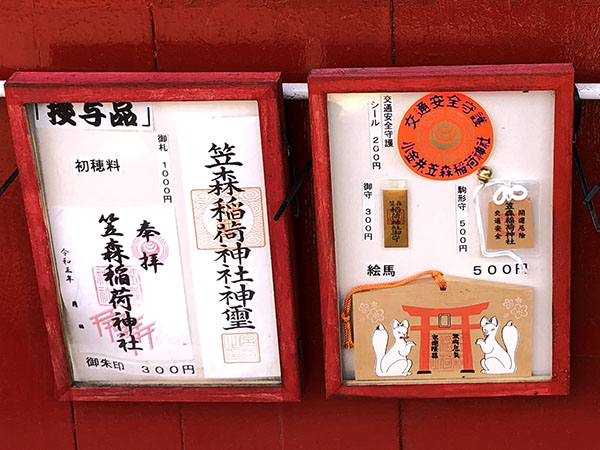 「授与品」
初穂料
御札　1000円
笠森稲荷神社神璽
奉拝
笠森稲荷神社
令和五年　月　日
御朱印　300円
交通安全守護
シール　200円
交通安全守護
小金井笠森稲荷神社
御守　300円
笠森稲荷神社御守
駒形守　500円
開運厄除
笠森稲荷神社
交通安全
絵馬　500円